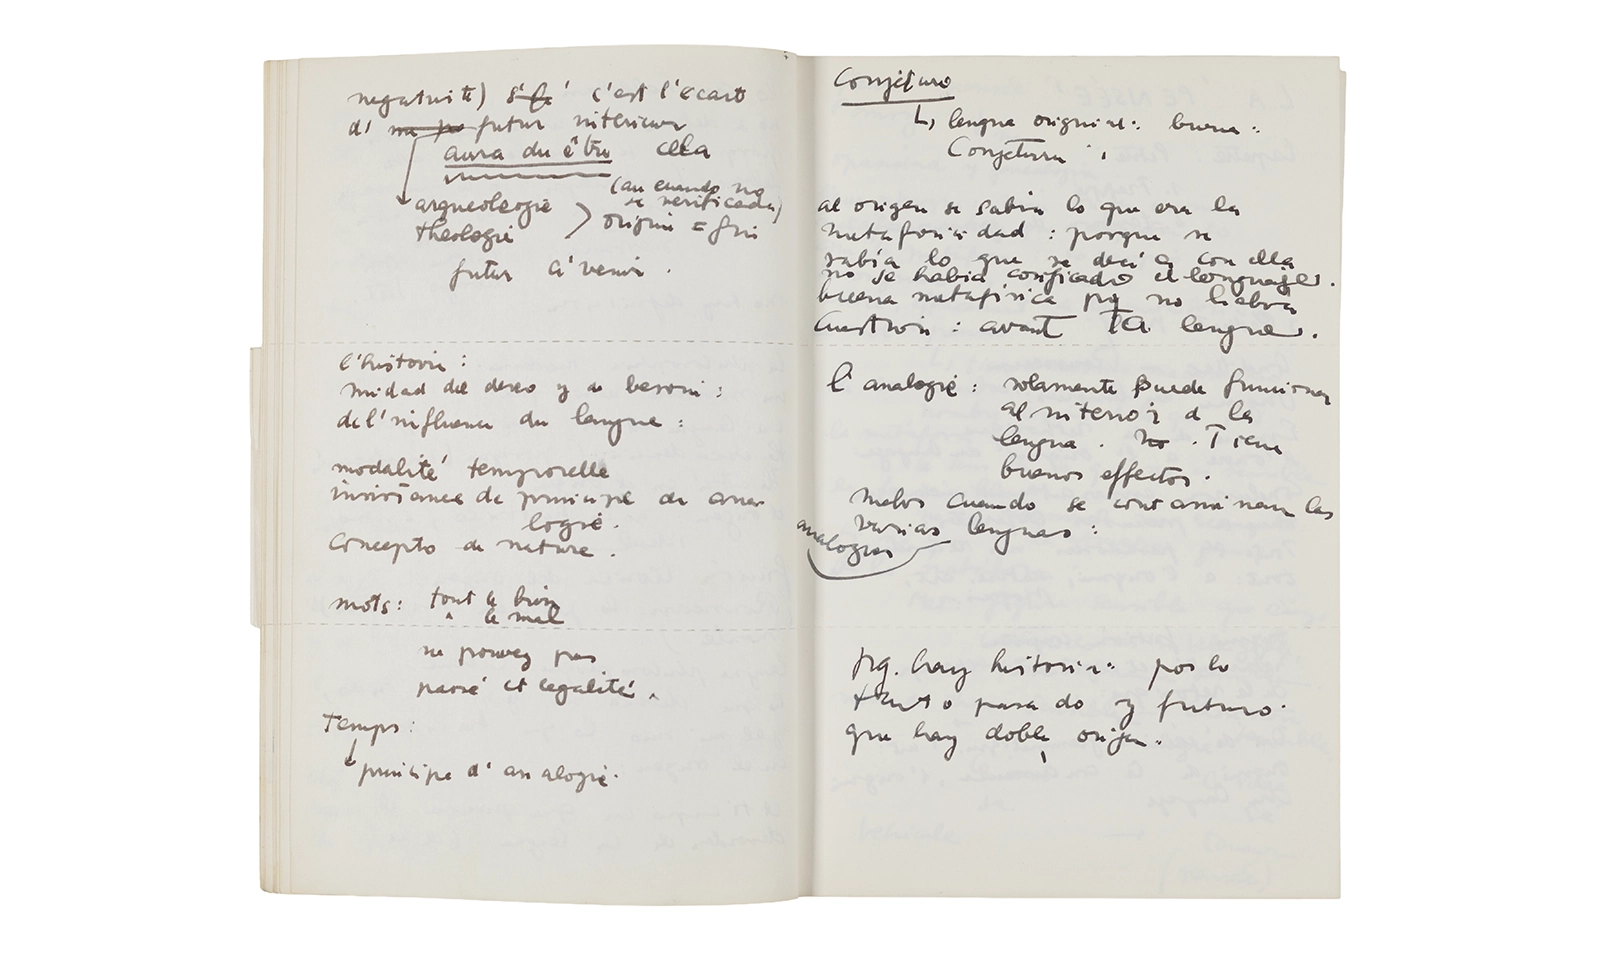 negativité) c'est l'écart
d' futur intérieur
aura du être cela
(aun cuando no
se verificada)
arqueologie
théologie
origini = fini
futur à venir.
l'histoire:
del deseo y
de l'influence du langue:
modalité temporelle
de principe de ana
logie.
Concepto de nature.
mots: tout le bien
" le mal
ne pouvez pas
passé et legalité.
Temps:
principe d'analogie.
Conjeturo
lengua original: buena:
Conjetura
al origen se sabía lo que era la
metaforicidad: porque se
sabía lo que se decía con ella
no se había cosificado el lenguaje.
buena metafísica pq no había
cuestion: avant la lengua.
l'analogie: solamente puede funcionar
al interior d la
lengua. No. Tiene
buenos effectos.
Malos cuando se contaminan las
varias lenguas:
analogias
pq. hay historia: por lo
tanto pasado y futuro.
que hay doble origen.